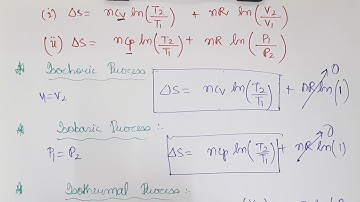 (i) ΔS = nCv ln(T2/T1) + nR ln(V2/V1)
(ii) ΔS = nCp ln(T2/T1) + nR ln(P1/P2)
Isochoric Process :-
V1 = V2 ΔS = nCv ln(T2/T1) + nR ln(1) 0
Isobaric Process :-
P1 = P2 ΔS = nCp ln(T2/T1) + nR ln(1) 0
Isothermal Process :-